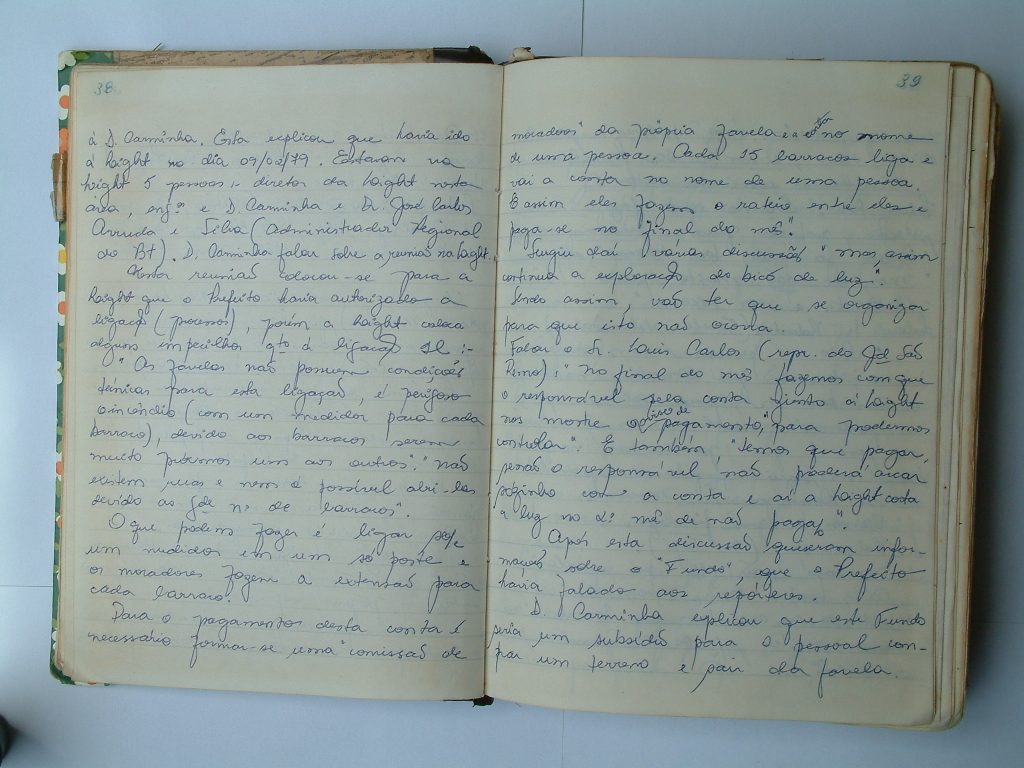 38
à D. Carminha. Esta explicou que havia ido
à Light no dia 09/02/79. Estavam na
Light 5 pessoas:- diretor da Light nesta
área, eng.º e D. Carminha e Dr. José Carlos
Arruda e Silva (Administrador Regional
do Bt). D. Carminha falou sobre a reunião na Light.
Nesta reunião colocou-se para a
Light que o Prefeito havia autorizado a
ligação (processo), porém a Light coloca
alguns impecilhos qto à ligação :-
"As favelas não possuem condições
técnicas para esta ligação, é perigoso
incêndio (com um medidor para cada
barraco), devido aos barracos serem
muito próximos uns aos outros". "não
existem ruas e nem é possível abri-las
devido ao gde nº de barracos".
O que podem fazer é ligar
um medidor em um só poste e
os moradores fazem a extensão para
cada barraco.
Para o pagamentos desta conta é
necessário formar-se uma "comissão de
39
moradores" da própria favela e a no nome
de uma pessoa. Cada 15 barracos liga e
vai a conta no nome de uma pessoa.
E assim eles fazem o rateio entre eles e
paga-se no final do mês".
Surgiu daí várias discussões "mas assim
continua a exploração do bico de luz".
Sendo assim, vão ter que se organizar
para que isto não ocorra.
Falou o Sr. Luis Carlos (repr. do Jd São
Remo): "No final do mês fazemos com que
o responsável pela conta junto à Light
nos mostre o aviso de pagamento, "para podermos
controlar". E também, "temos que pagar,
senão o responsável não poderá arcar
sozinho com a conta e aí a Light corta
a luz no 2º mês de não pagar".
Após esta discussão quiseram infor-
mações sobre o "Fundo", que o Prefeito
havia falado aos repórteres.
D. Carminha explicou que este Fundo
seria um subsídio para o pessoal com-
prar um terreno e sair da favela.